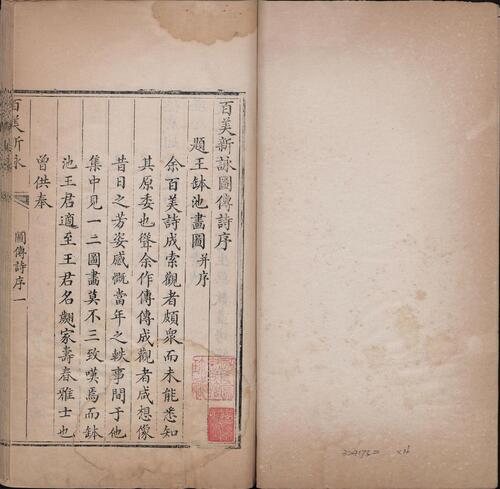 百美新詠圖傳詩序
題王鉢池畫圖并序
余百美詩成索觀者頗衆而未能悉知
其原委也聳余作傳傳成觀者咸想像
昔日之芳姿感慨當年之軼事間于他
集中見一二圖畫莫不三致嘆焉而鉢
池王君適至王君名翽家壽春雅士也
曾供奉
百美新詠
圖傳詩序一